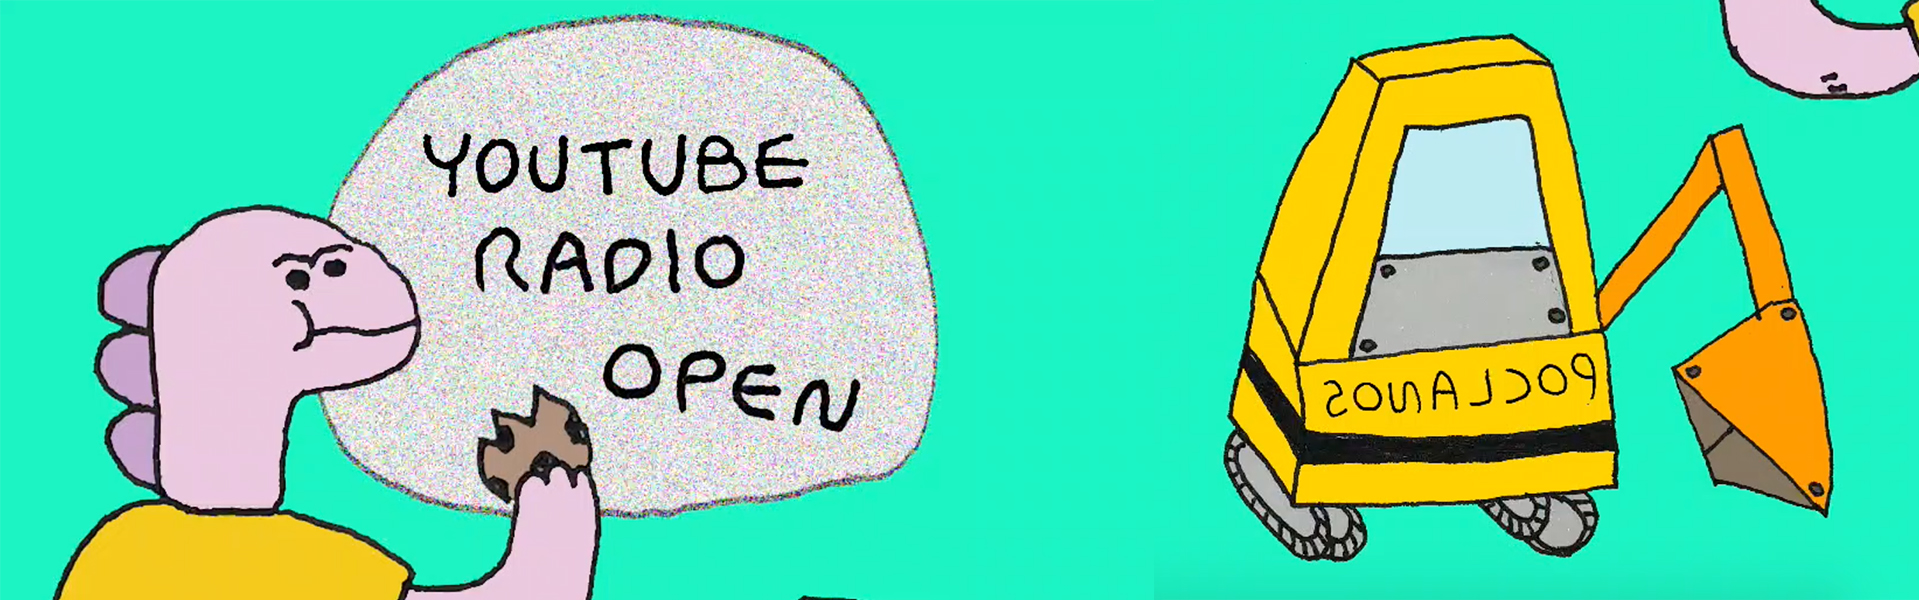 YOUTUBE
RADIO
OPEN
POCLANOS